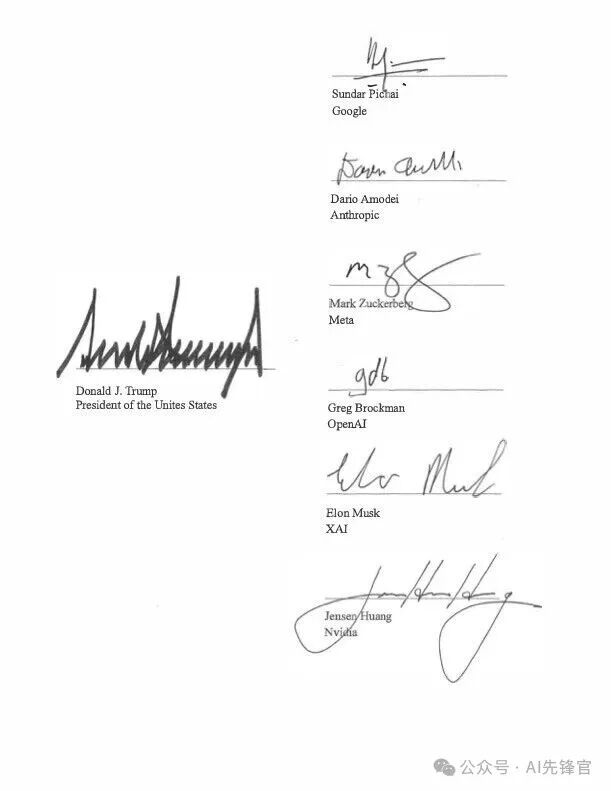 Sundar Pichai
Google
Dario Amodei
Anthropic
Mark Zuckerberg
Meta
Donald J. Trump
President of the Unites States
gdb
Greg Brockman
OpenAI
Elon Musk
Elon Musk
XAI
Jensen Huang
Nvidia
公众号 · AI先锋官